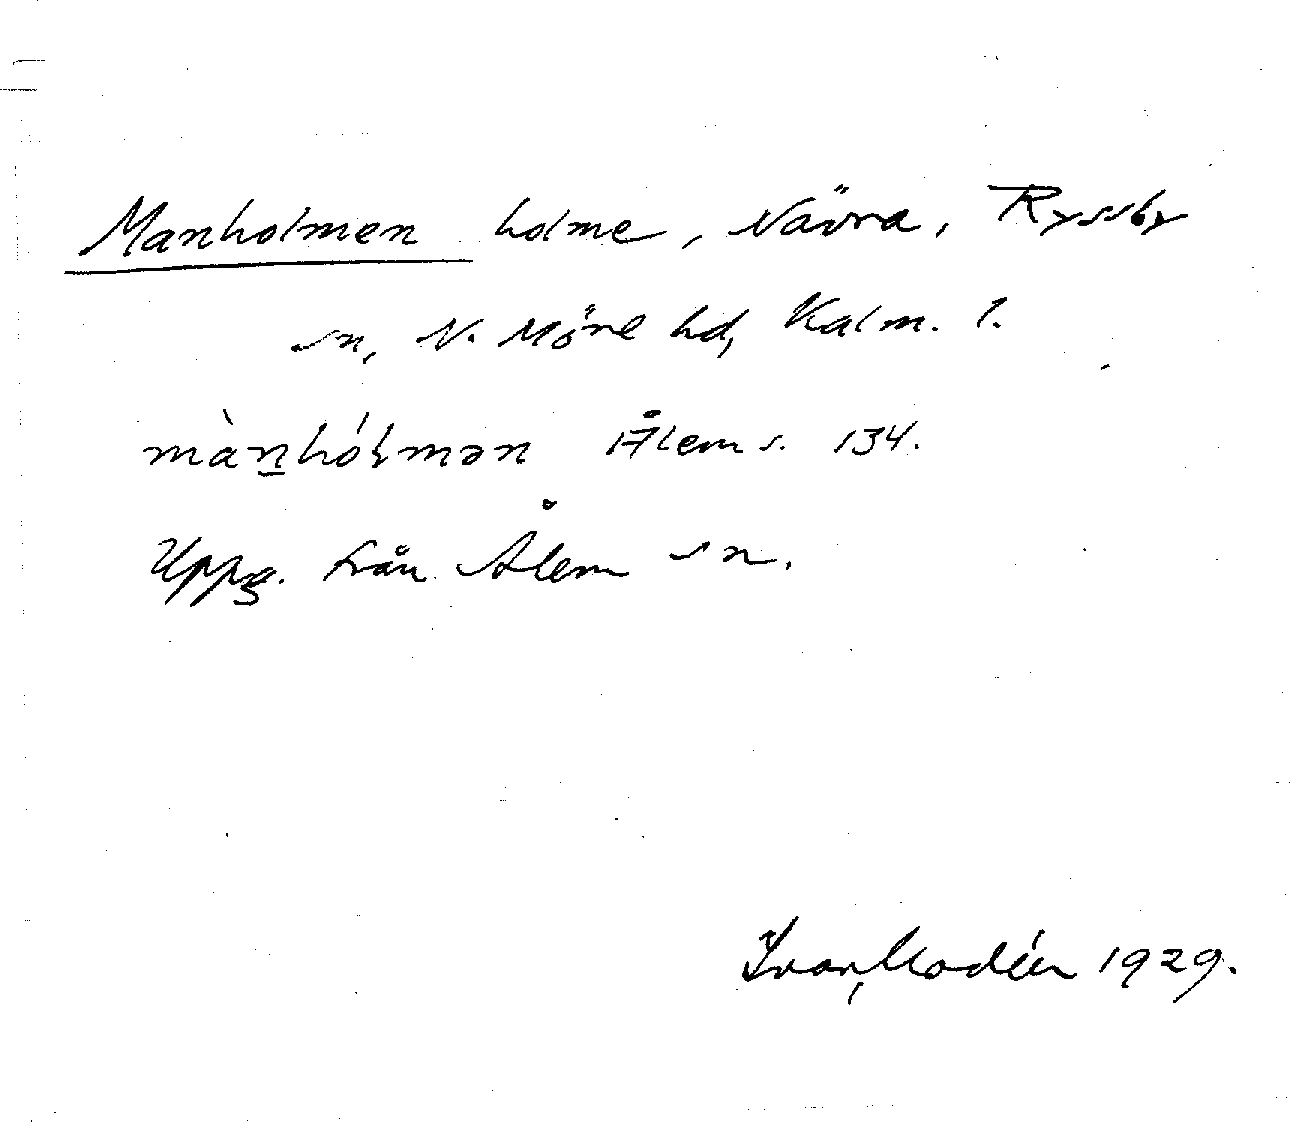 Manholmen holme, Nävra, Ryssby
sn, N. Möre hd, Kalm. l.
màn̲hólmən Ålem s. 134.
Uppg. från Ålem sn.
Ivar Modéer 1929.